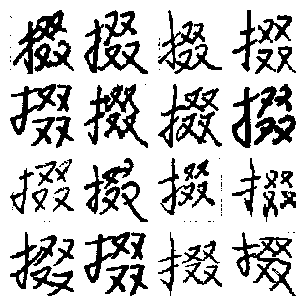 掇掇掇掇
掇掇掇掇
掇掇掇掇
掇掇掇掇